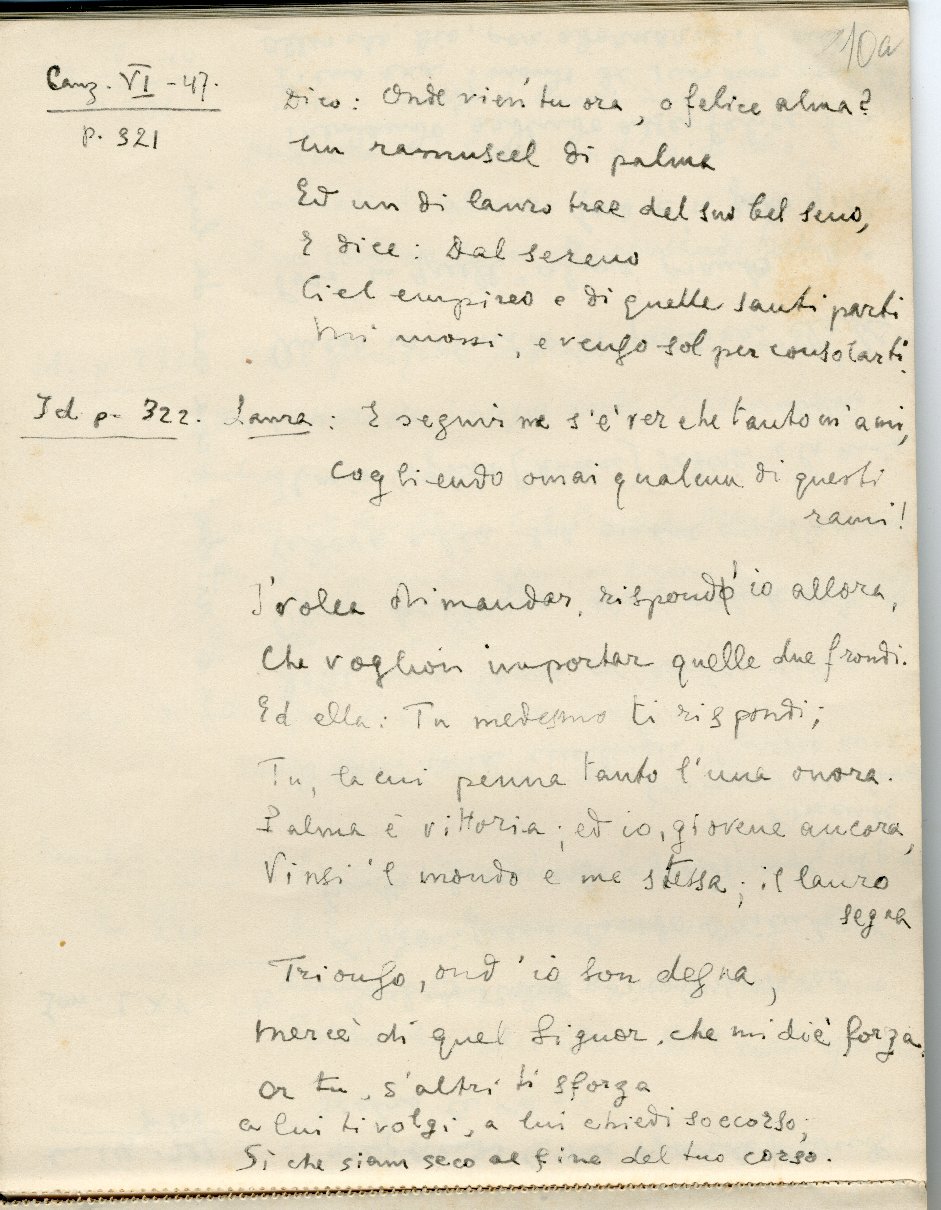 10a
Canz. VI - 47.
p. 321
Dico: Onde vien' tu ora, o felice alma?
Un ramuscel di palma
Ed un di lauro trae del suo bel seno,
E dice: Dal sereno
Ciel empireo e di quelle santi parti
Mi mossi, e vengo sol per consolarti.
Id p. 322. Laura: E seguir me s'è ver che tanto m'ami,
Cogliendo omai qualcun di questi
rami!
I' volea dimandar, rispond' io allora,
Che voglion importar quelle due frondi.
Ed ella: Tu medesmo ti rispondi;
Tu, la cui penna tanto l'una onora.
Palma è vittoria; ed io, giovene ancora,
Vinsi 'l mondo e me stessa; il lauro
segna
Trionfo, ond' io son degna,
Mercè di quel Signor, che mi diè forza.
Or tu, s'altri ti sforza
a lui ti volgi, a lui chiedi soccorso;
Si che siam seco al fine del tuo corso.